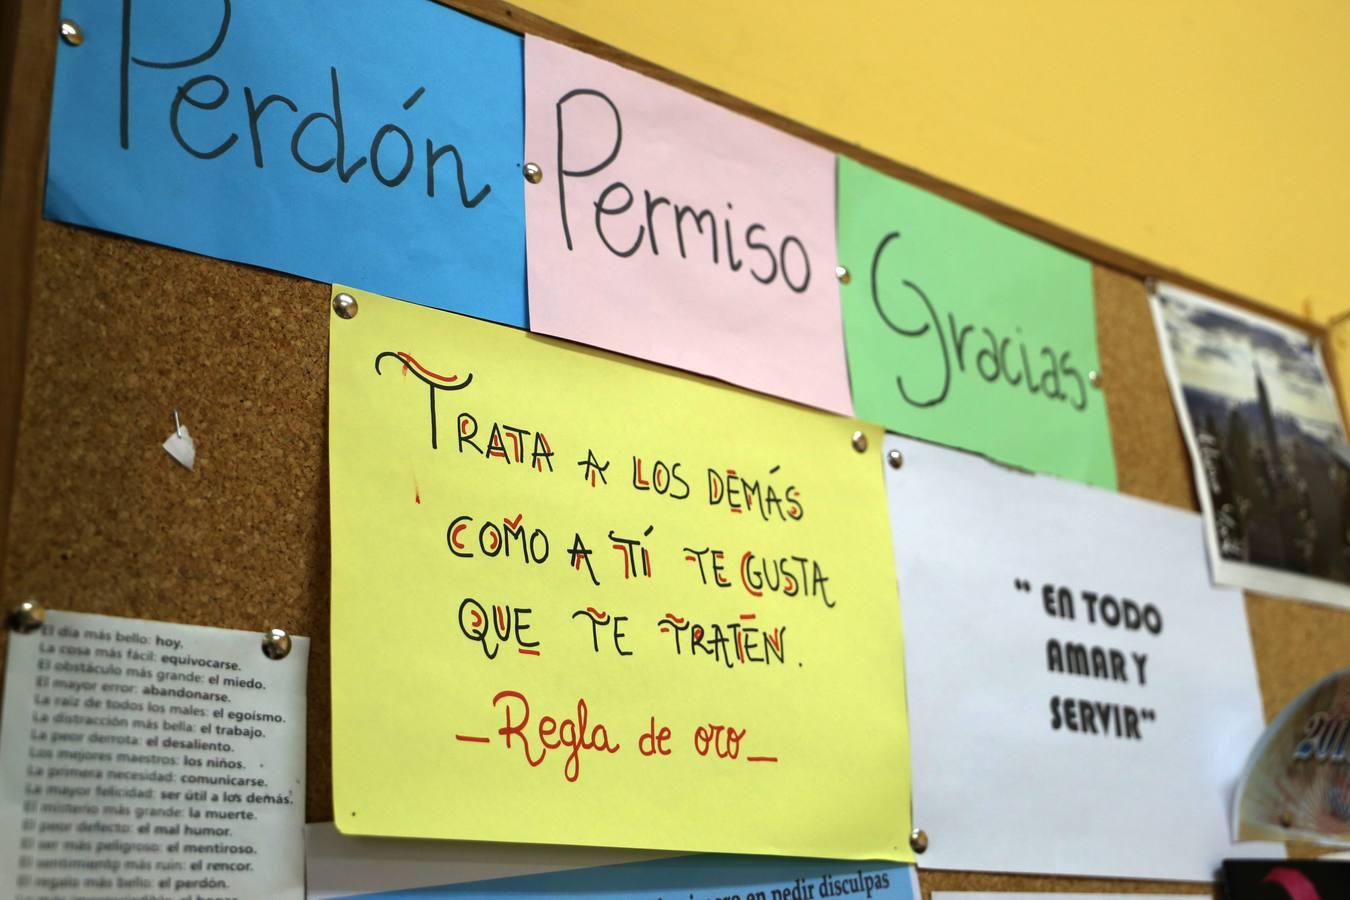 Perdón
Permiso
Gracias
TRATA A LOS DEMÁS
COMO A TÍ TE GUSTA
QUE TE TRATEN.
_Regla de oro_
" EN TODO
AMAR Y
SERVIR"
El día más bello: hoy.
La cosa más fácil: equivocarse.
El obstáculo más grande: el miedo.
El mayor error: abandonarse.
La raíz de todos los males: el egoísmo.
La distracción más bella: el trabajo.
La peor derrota: el desaliento.
Los mejores maestros: los niños.
La primera necesidad: comunicarse.
La mayor felicidad: ser útil a los demás.
El misterio más grande: la muerte.
El peor defecto: el mal humor.
El ser más peligroso: el mentiroso.
El sentimiento más ruin: el rencor.
El regalo más bello: el perdón.
en pedir disculpas